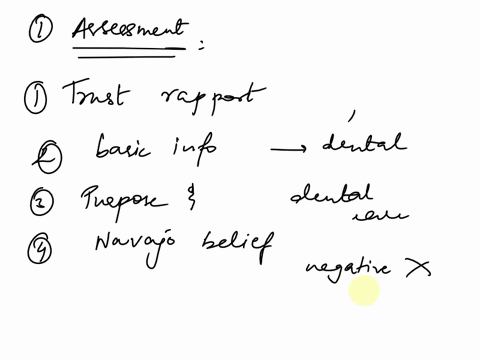 ① Assessment :
① Trust rapport
② basic info → dental
③ Purpose & dental
④ Navajo belief
negative X